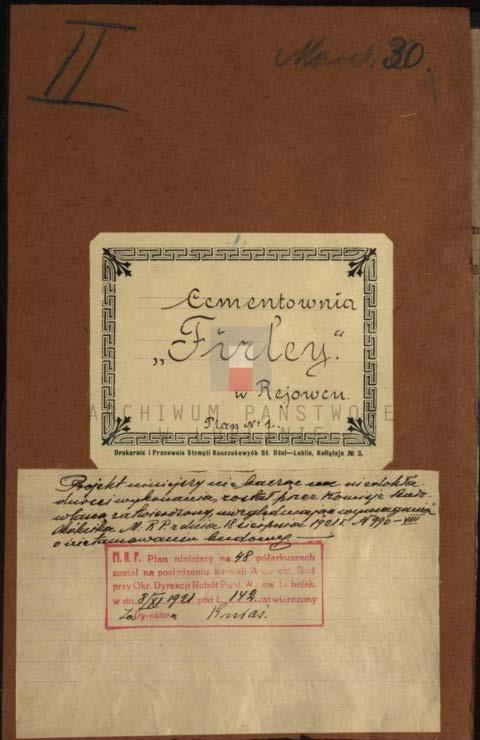 II
30.
Cementownia
„Firley“
w Rejowcu
Plan № 1.
ARCHIWUM PAŃSTWOWE
W LUBLINIE
Drukarnia i Pracownia Stempli Kauczukowych St. Dżal—Lublin, Kołłątaja № 3.
Projekt niniejszy nie bacząc na niedokła-
dności wykonania, został przez Komisję Budo-
wlaną zatwierdzony, uwzględniając wymagania
Okólnika M.R.P. z dnia 18 sierpnia 1921 r. № 990-VIII
o nietamowaniu budowy.
M. R. P. Plan niniejszy na 48 półarkuszach
został na posiedzeniu komisji Architekt. Bud
przy Okr. Dyrekcji Robót Publ. Wojew. Lubelsk.
w dn. 3/XI 1921 pod L. 142 zatwierdzony
Za Dyrektora